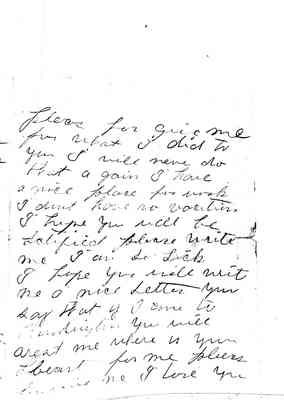 Pleas for give me
for what I did to
you I will never do
that a gain I have
a nice place for work
I dont have no
I hope you will be
please write
me I am so sick
I hope you will writ
me a nice letter you
say that if I come to
you will
treat me where is your
heart for me pleas
me I love you